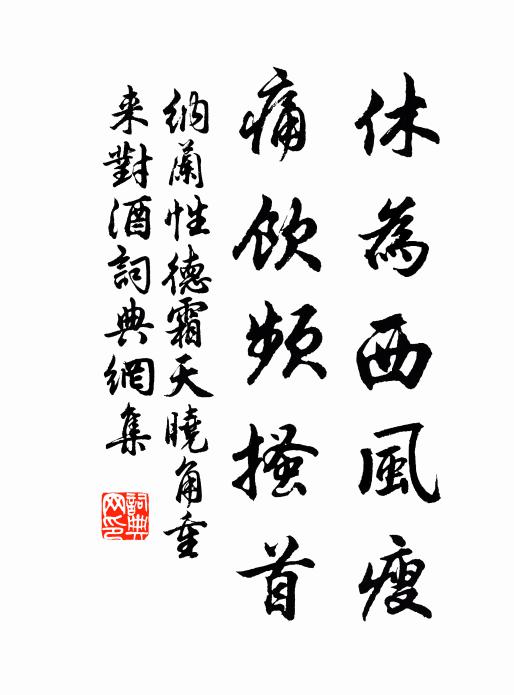 休為西風瘦
痛飲頻搔首
納蘭性德霜天曉角重
來對酒詞典網集
詞典
网印